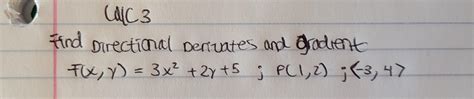 CalC 3
Find Directional Derivates and gradient
F(x,y) = 3x² + 2y + 5 ; P(1,2) ; <-3, 4>